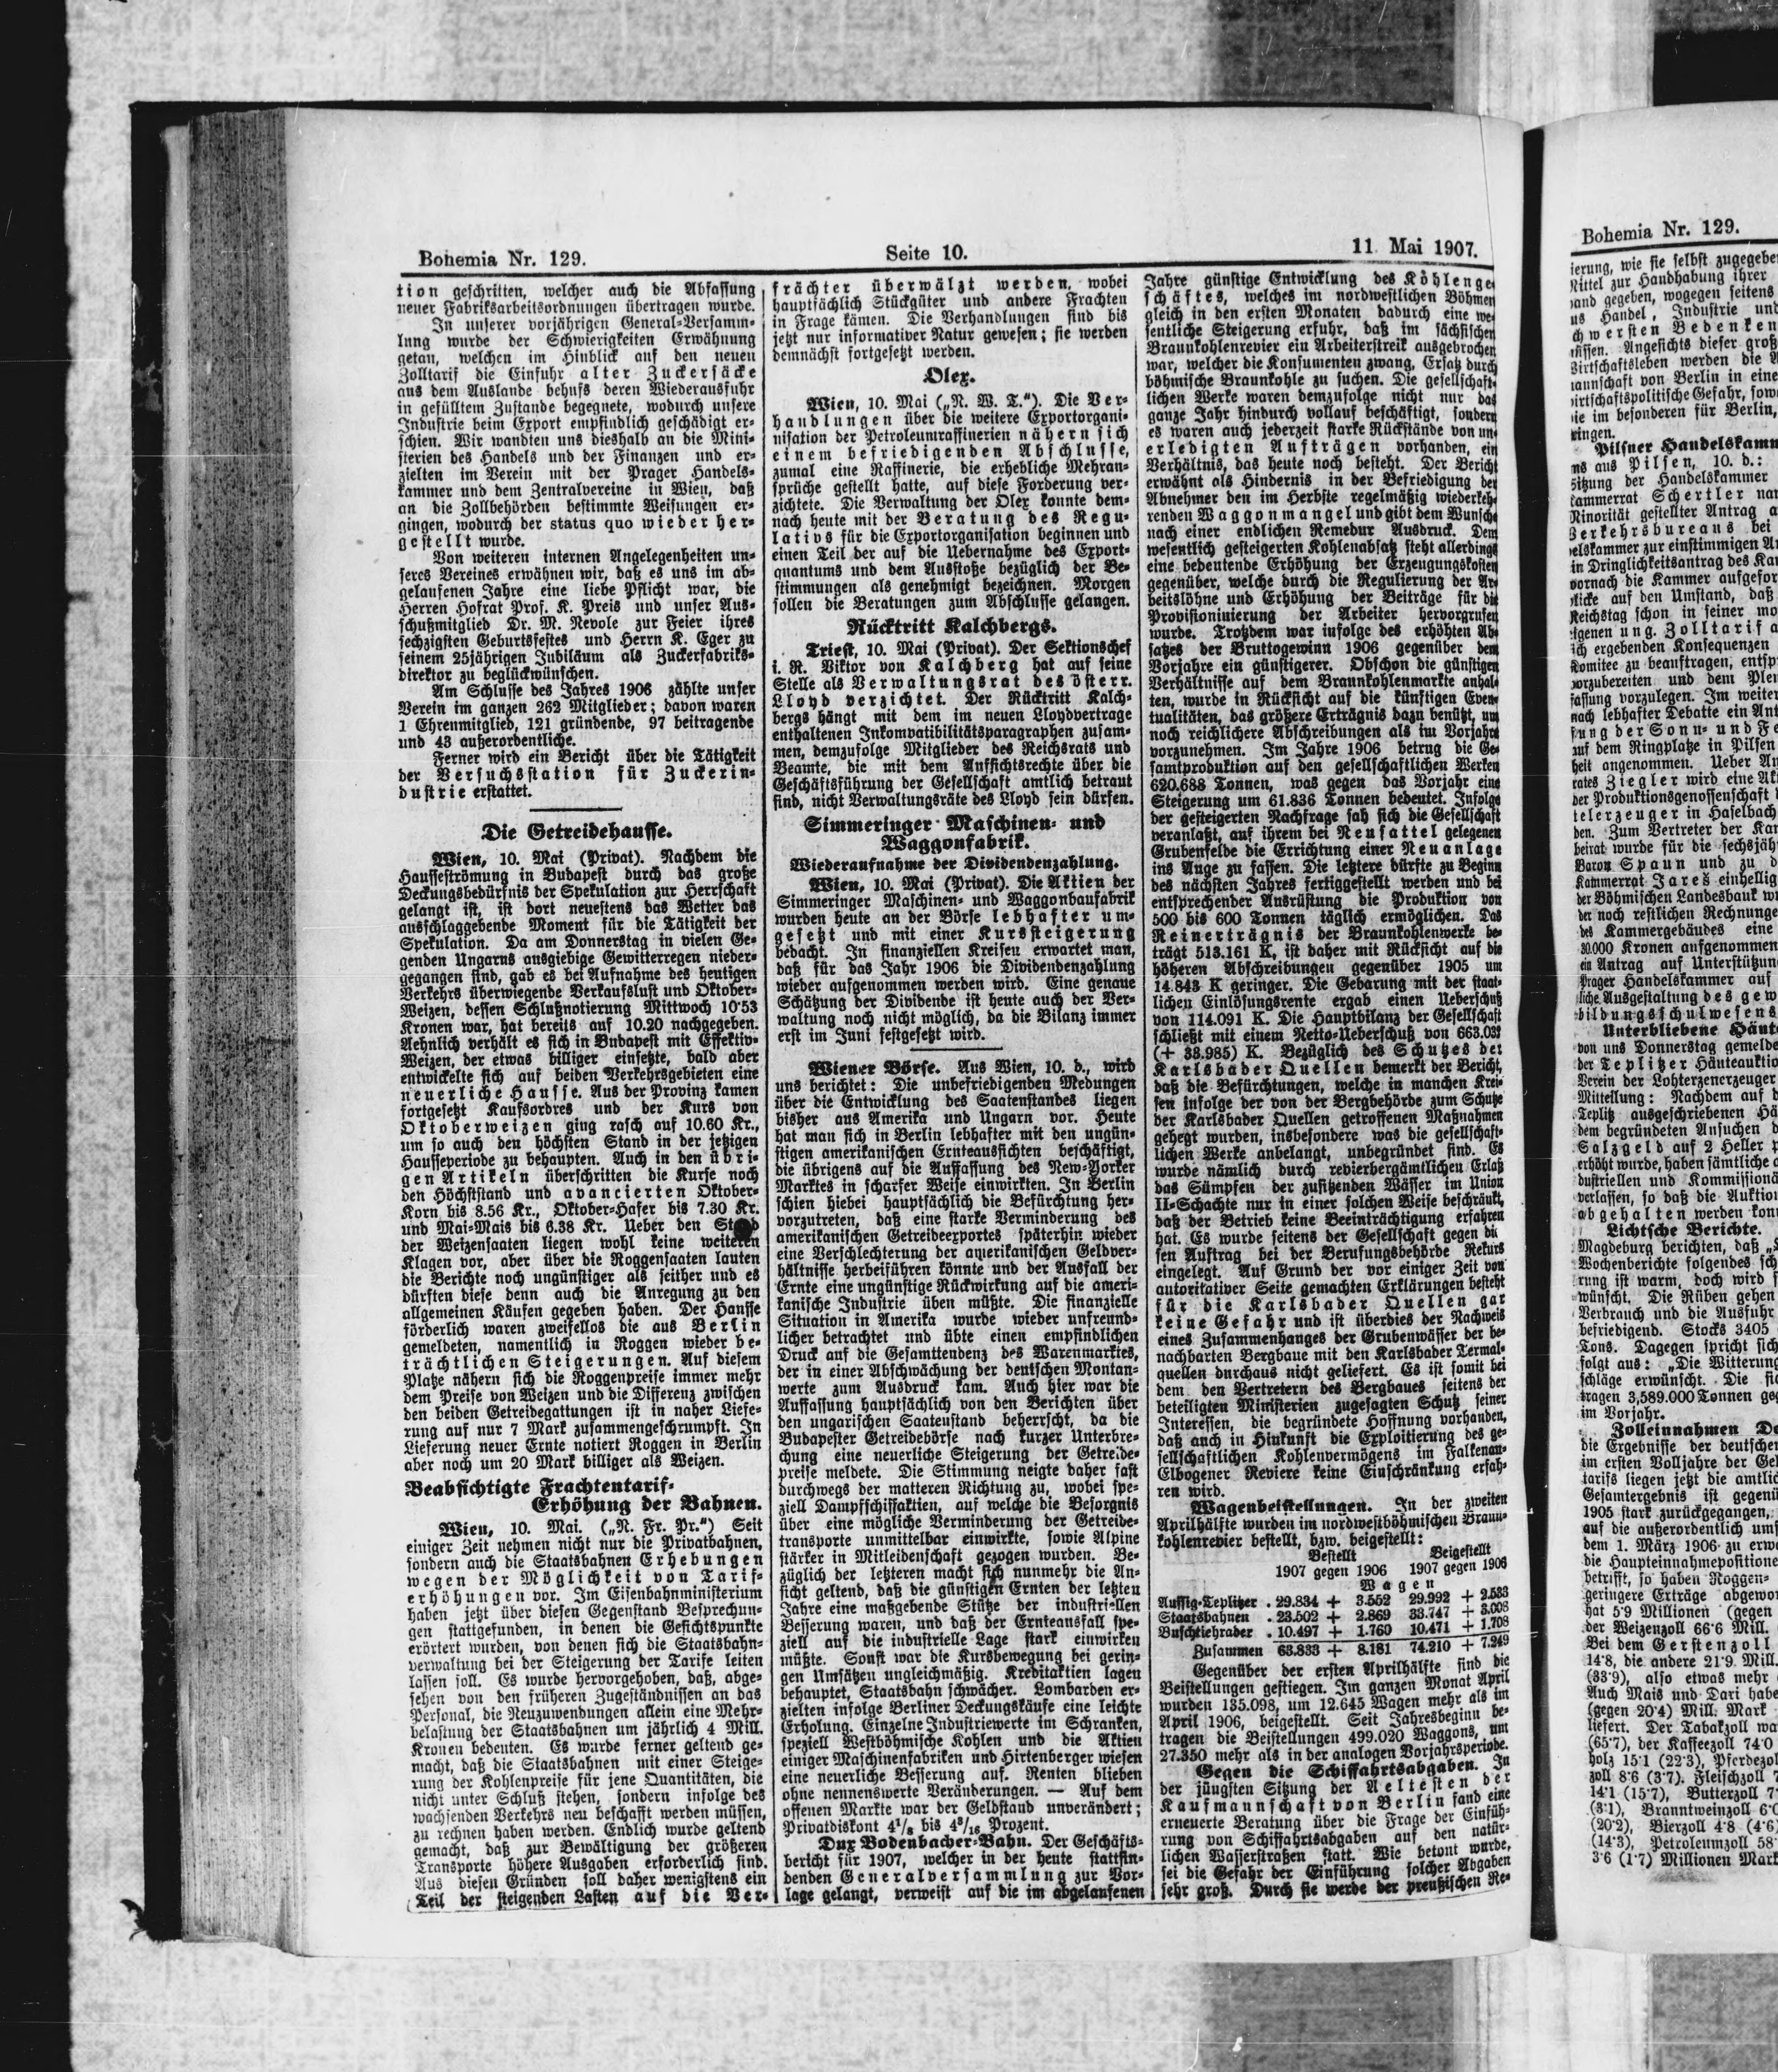 Bohemia Nr. 129.
Seite 10.
11 Mai 1907.
tion geschritten, welcher auch die Abfassung
neuer Fabriksarbeitsordnungen übertragen wurde.
In unserer vorjährigen General-Versamm-
lung wurde der Schwierigkeiten Erwähnung
getan, welchen im Hinblick auf den neuen
Zolltarif die Einfuhr alter Zuckersäcke
aus dem Auslande behufs deren Wiederausfuhr
in gefülltem Zustande begegnete, wodurch unsere
Industrie beim Export empfindlich geschädigt er-
schien. Wir wandten uns dieshalb an die Mini-
sterien des Handels und der Finanzen und er-
zielten im Verein mit der Prager Handels-
kammer und dem Zentralvereine in Wien, daß
an die Zollbehörden bestimmte Weisungen er-
gingen, wodurch der status quo wieder her-
gestellt wurde.
Von weiteren internen Angelegenheiten un-
seres Vereines erwähnen wir, daß es uns im ab-
gelaufenen Jahre eine liebe Pflicht war, die
Herren Hofrat Prof. K. Preis und unser Aus-
schußmitglied Dr. M. Nevole zur Feier ihres
sechzigsten Geburtsfestes und Herrn K. Eger zu
seinem 25jährigen Jubiläum als Zuckerfabriks-
direktor zu beglückwünschen.
Am Schlusse des Jahres 1906 zählte unser
Verein im ganzen 262 Mitglieder; davon waren
1 Ehrenmitglied, 121 gründende, 97 beitragende
und 43 außerordentliche.
Ferner wird ein Bericht über die Tätigkeit
der Versuchsstation für Zuckerin-
dustrie erstattet.
Die Getreidehausse.
Wien, 10. Mai (Privat). Nachdem die
Hausseströmung in Budapest durch das große
Deckungsbedürfnis der Spekulation zur Herrschaft
gelangt ist, ist dort neuestens das Wetter das
ausschlaggebende Moment für die Tätigkeit der
Spekulation. Da am Donnerstag in vielen Ge-
genden Ungarns ausgiebige Gewitterregen nieder-
gegangen sind, gab es bei Aufnahme des heutigen
Verkehrs überwiegende Verkaufslust und Oktober-
Weizen, dessen Schlußnotierung Mittwoch 10·53
Kronen war, hat bereits auf 10.20 nachgegeben.
Aehnlich verhält es sich in Budapest mit Effektiv-
Weizen, der etwas billiger einsetzte, bald aber
entwickelte sich auf beiden Verkehrsgebieten eine
neuerliche Hausse. Aus der Provinz kamen
fortgesetzt Kaufsordres und der Kurs von
Oktoberweizen ging rasch auf 10.60 Kr.,
um so auch den höchsten Stand in der jetzigen
Hausseperiode zu behaupten. Auch in den übri-
gen Artikeln überschritten die Kurse noch
den Höchststand und avancierten Oktober-
Korn bis 8.56 Kr., Oktober-Hafer bis 7.30 Kr.
und Mai-Mais bis 6.38 Kr. Ueber den Stand
der Weizensaaten liegen wohl keine weiteren
Klagen vor, aber über die Roggensaaten lauten
die Berichte noch ungünstiger als seither und es
dürften diese denn auch die Anregung zu den
allgemeinen Käufen gegeben haben. Der Hausse
förderlich waren zweifellos die aus Berlin
gemeldeten, namentlich in Roggen wieder be-
trächtlichen Steigerungen. Auf diesem
Platze nähern sich die Roggenpreise immer mehr
dem Preise von Weizen und die Differenz zwischen
den beiden Getreidegattungen ist in naher Liefe-
rung auf nur 7 Mark zusammengeschrumpft. In
Lieferung neuer Ernte notiert Roggen in Berlin
aber noch um 20 Mark billiger als Weizen.
Beabsichtigte Frachtentarif-
Erhöhung der Bahnen.
Wien, 10. Mai. („N. Fr. Pr.“) Seit
einiger Zeit nehmen nicht nur die Privatbahnen,
sondern auch die Staatsbahnen Erhebungen
wegen der Möglichkeit von Tarif-
erhöhungen vor. Im Eisenbahnministerium
haben jetzt über diesen Gegenstand Besprechun-
gen stattgefunden, in denen die Gesichtspunkte
erörtert wurden, von denen sich die Staatsbahn-
verwaltung bei der Steigerung der Tarife leiten
lassen soll. Es wurde hervorgehoben, daß, abge-
sehen von den früheren Zugeständnissen an das
Personal, die Neuzuwendungen allein eine Mehr-
belastung der Staatsbahnen um jährlich 4 Mill.
Kronen bedeuten. Es wurde ferner geltend ge-
macht, daß die Staatsbahnen mit einer Steige-
rung der Kohlenpreise für jene Quantitäten, die
nicht unter Schluß stehen, sondern infolge des
wachsenden Verkehrs neu beschafft werden müssen,
zu rechnen haben werden. Endlich wurde geltend
gemacht, daß zur Bewältigung der größeren
Transporte höhere Ausgaben erforderlich sind.
Aus diesen Gründen soll daher wenigstens ein
Teil der steigenden Lasten auf die Ver-
frächter überwälzt werden, wobei
hauptsächlich Stückgüter und andere Frachten
in Frage kämen. Die Verhandlungen sind bis
jetzt nur informativer Natur gewesen; sie werden
demnächst fortgesetzt werden.
Olex.
Wien, 10. Mai („N. W. T.“). Die Ver-
handlungen über die weitere Exportorgani-
nisation der Petroleumraffinerien nähern sich
einem befriedigenden Abschlusse,
zumal eine Raffinerie, die erhebliche Mehran-
sprüche gestellt hatte, auf diese Forderung ver-
zichtete. Die Verwaltung der Olex konnte dem-
nach heute mit der Beratung des Regu-
lativs für die Exportorganisation beginnen und
einen Teil der auf die Uebernahme des Export-
quantums und dem Ausstoße bezüglich der Be-
stimmungen als genehmigt bezeichnen. Morgen
sollen die Beratungen zum Abschlusse gelangen.
Rücktritt Kalchbergs.
Triest, 10. Mai (Privat). Der Sektionschef
i. R. Viktor von Kalchberg hat auf seine
Stelle als Verwaltungsrat des österr.
Lloyd verzichtet. Der Rücktritt Kalch-
bergs hängt mit dem im neuen Lloydvertrage
enthaltenen Inkompatibilitätsparagraphen zusam-
men, demzufolge Mitglieder des Reichsrats und
Beamte, die mit dem Aufsichtsrechte über die
Geschäftsführung der Gesellschaft amtlich betraut
sind, nicht Verwaltungsräte des Lloyd sein dürfen.
Simmeringer Maschinen- und
Waggonfabrik.
Wiederaufnahme der Dividendenzahlung.
Wien, 10. Mai (Privat). Die Aktien der
Simmeringer Maschinen- und Waggonbaufabrik
wurden heute an der Börse lebhafter um-
gesetzt und mit einer Kurssteigerung
bedacht. In finanziellen Kreisen erwartet man,
daß für das Jahr 1906 die Dividendenzahlung
wieder aufgenommen werden wird. Eine genaue
Schätzung der Dividende ist heute auch der Ver-
waltung noch nicht möglich, da die Bilanz immer
erst im Juni festgesetzt wird.
Wiener Börse. Aus Wien, 10. d., wird
uns berichtet: Die unbefriedigenden Medungen
über die Entwicklung des Saatenstandes liegen
bisher aus Amerika und Ungarn vor. Heute
hat man sich in Berlin lebhafter mit den ungün-
stigen amerikanischen Ernteaussichten beschäftigt,
die übrigens auf die Auffassung des New-Yorker
Marktes in scharfer Weise einwirkten. In Berlin
schien hiebei hauptsächlich die Befürchtung her-
vorzutreten, daß eine starke Verminderung des
amerikanischen Getreideexportes späterhin wieder
eine Verschlechterung der amerikanischen Geldver-
hältnisse herbeiführen könnte und der Ausfall der
Ernte eine ungünstige Rückwirkung auf die ameri-
kanische Industrie üben müßte. Die finanzielle
Situation in Amerika wurde wieder unfreund-
licher betrachtet und übte einen empfindlichen
Druck auf die Gesamttendenz des Warenmarktes,
der in einer Abschwächung der deutschen Montan-
werte zum Ausdruck kam. Auch hier war die
Auffassung hauptsächlich von den Berichten über
den ungarischen Saatenstand beherrscht, da die
Budapester Getreidebörse nach kurzer Unterbre-
chung eine neuerliche Steigerung der Getreide-
preise meldete. Die Stimmung neigte daher fast
durchwegs der matteren Richtung zu, wobei spe-
ziell Dampfschiffaktien, auf welche die Besorgnis
über eine mögliche Verminderung der Getreide-
transporte unmittelbar einwirkte, sowie Alpine
stärker in Mitleidenschaft gezogen wurden. Be-
züglich der letzteren macht sich nunmehr die An-
sicht geltend, daß die günstigen Ernten der letzten
Jahre eine maßgebende Stütze der industriellen
Besserung waren, und daß der Ernteausfall spe-
ziell auf die industrielle Lage stark einwirken
müßte. Sonst war die Kursbewegung bei gerin-
gen Umsätzen ungleichmäßig. Kreditaktien lagen
behauptet, Staatsbahn schwächer. Lombarden er-
zielten infolge Berliner Deckungskäufe eine leichte
Erholung. Einzelne Industriewerte im Schranken,
speziell Westböhmische Kohlen und die Aktien
einiger Maschinenfabriken und Hirtenberger wiesen
eine neuerliche Besserung auf. Renten blieben
ohne nennenswerte Veränderungen. — Auf dem
offenen Markte war der Geldstand unverändert;
Privatdiskont 4¹/₈ bis 4³/₁₆ Prozent.
Dux Bodenbacher-Bahn. Der Geschäfts-
bericht für 1907, welcher in der heute stattfin-
denden Generalversammlung zur Vor-
lage gelangt, verweist auf die im abgelaufenen
Jahre günstige Entwicklung des Kohlenge
schäftes, welches im nordwestlichen Böhmen
gleich in den ersten Monaten dadurch eine we
sentliche Steigerung erfuhr, daß im sächsischen
Braunkohlenrevier ein Arbeiterstreik ausgebrochen
war, welcher die Konsumenten zwang, Ersatz durch
böhmische Braunkohle zu suchen. Die gesellschaft-
lichen Werke waren demzufolge nicht nur das
ganze Jahr hindurch vollauf beschäftigt, sondern
es waren auch jederzeit starke Rückstände von un-
erledigten Aufträgen vorhanden, ein
Verhältnis, das heute noch besteht. Der Bericht
erwähnt als Hindernis in der Befriedigung der
Abnehmer den im Herbste regelmäßig wiederkeh-
renden Waggonmangel und gibt dem Wunsche
nach einer endlichen Remedur Ausdruck. Dem
wesentlich gesteigerten Kohlenabsatz steht allerdings
eine bedeutende Erhöhung der Erzeugungskosten
gegenüber, welche durch die Regulierung der Ar-
beitslöhne und Erhöhung der Beiträge für die
Provisioniuierung der Arbeiter hervorgrufen
wurde. Trotzdem war infolge des erhöhten Ab-
satzes der Bruttogewinn 1906 gegenüber dem
Vorjahre ein günstigerer. Obschon die günstigen
Verhältnisse auf dem Braunkohlenmarkte anhal-
ten, wurde in Rücksicht auf die künftigen Even-
tualitäten, das größere Erträgnis dazu benützt, um
noch reichlichere Abschreibungen als im Vorjahre
vorzunehmen. Im Jahre 1906 betrug die Ge-
samtproduktion auf den gesellschaftlichen Werken
620.688 Tonnen, was gegen das Vorjahr eine
Steigerung um 61.836 Tonnen bedeutet. Infolge
der gesteigerten Nachfrage sah sich die Gesellschaft
veranlaßt, auf ihrem bei Neusattel gelegenen
Grubenfelde die Errichtung einer Neuanlage
ins Auge zu fassen. Die letztere dürfte zu Beginn
des nächsten Jahres fertiggestellt werden und bei
entsprechender Ausrüstung die Produktion von
500 bis 600 Tonnen täglich ermöglichen. Das
Reinerträgnis der Braunkohlenwerke be-
trägt 513.161 K, ist daher mit Rücksicht auf die
höheren Abschreibungen gegenüber 1905 um
14.843 K geringer. Die Gebarung mit der staat-
lichen Einlösungsrente ergab einen Ueberschuß
von 114.091 K. Die Hauptbilanz der Gesellschaft
schließt mit einem Netto-Ueberschuß von 663.03
(+ 33.985) K. Bezüglich des Schutzes der
Karlsbader Quellen bemerkt der Bericht,
daß die Befürchtungen, welche in manchen Krei-
sen infolge der von der Bergbehörde zum Schutze
der Karlsbader Quellen getroffenen Maßnahmen
gehegt wurden, insbesondere was die gesellschaft-
lichen Werke anbelangt, unbegründet sind. Es
wurde nämlich durch revierbergämtlichen Erlaß
das Sümpfen der zusitzenden Wässer im Union
II-Schachte nur in einer solchen Weise beschränkt,
daß der Betrieb keine Beeinträchtigung erfahren
hat. Es wurde seitens der Gesellschaft gegen die
sen Auftrag bei der Berufungsbehörde Rekurs
eingelegt. Auf Grund der vor einiger Zeit von
autoritativer Seite gemachten Erklärungen besteht
für die Karlsbader Quellen gar
keine Gefahr und ist überdies der Nachweis
eines Zusammenhanges der Grubenwässer der be-
nachbarten Bergbaue mit den Karlsbader Termal-
quellen durchaus nicht geliefert. Es ist somit bei
dem den Vertretern des Bergbaues seitens der
beteiligten Ministerien zugesagten Schutz seiner
Interessen, die begründete Hoffnung vorhanden,
daß auch in Hinkunft die Exploitierung des ge-
sellschaftlichen Kohlenvermögens im Falkenau-
Elbogener Reviere keine Einschränkung erfah-
ren wird.
Wagenbeistellungen. In der zweiten
Aprilhälfte wurden im nordwestböhmischen Braun-
kohlenrevier bestellt, bzw. beigestellt:
Bestellt Beigestellt
1907 gegen 1906 1907 gegen 1906
Wagen
Aussig-Teplitzer . 29.834 + 3.552 29.992 + 2.533
Staatsbahnen . 23.502 + 2.869 33.747 + 3.008
Buschtiehrader . 10.497 + 1.760 10.471 + 1.708
Zusammen 63.833 + 8.181 74.210 + 7.249
Gegenüber der ersten Aprilhälfte sind die
Beistellungen gestiegen. Im ganzen Monat April
wurden 135.098, um 12.645 Wagen mehr als im
April 1906, beigestellt. Seit Jahresbeginn be-
tragen die Beistellungen 499.020 Waggons, um
27.350 mehr als in der analogen Vorjahrsperiode.
Gegen die Schiffahrtsabgaben. In
der jüngsten Sitzung der Aeltesten der
Kaufmannschaft von Berlin fand eine
erneuerte Beratung über die Frage der Einfüh-
rung von Schiffahrtsabgaben auf den natür-
lichen Wasserstraßen statt. Wie betont wurde,
sei die Gefahr der Einführung solcher Abgaben
sehr groß. Durch sie werde der preußischen Re-
Bohemia Nr. 129.
ierung, wie sie selbst zugegeben
Mittel zur Handhabung ihrer
and gegeben, wogegen seitens
us Handel, Industrie und
chwersten Bedenken
üssen. Angesichts dieser groß
Wirtschaftsleben werden die A
mannschaft von Berlin in eine
irtschaftspolitische Gefahr, sow
ie im besonderen für Berlin,
ringen.
Pilsner Handelskamm
ns aus Pilsen, 10. d.:
Sitzung der Handelskammer
kammerrat Schertler nam
Minorität gestellter Antrag a
Verkehrsbureaus bei
elskammer zur einstimmigen An
in Dringlichkeitsantrag des Kam
vornach die Kammer aufgefor
licke auf den Umstand, daß
Reichstag schon in seiner mo
igenen ung. Zolltarif a
ich ergebenden Konsequenzen
Komitee zu beauftragen, entsp
vorzubereiten und dem Plen
fassung vorzulegen. Im weiter
nach lebhafter Debatte ein Ant
ung der Sonn- und Fe
auf dem Ringplatze in Pilsen
heit angenommen. Ueber An
rates Ziegler wird eine Ak
der Produktionsgenossenschaft
telerzeuger in Haselbach
den. Zum Vertreter der Kam
beirat wurde für die sechsjäh
Baron Spaun und zu d
Kammerrat Jares einhellig
der Böhmischen Landesbank w
der noch restlichen Rechnunge
des Kammergebäudes eine
30.000 Kronen aufgenommen
ein Antrag auf Unterstützun
Prager Handelskammer auf
liche Ausgestaltung des gew
bildungsschulwesens
Unterbliebene Häute
von uns Donnerstag gemelde
der Teplitzer Häuteauktio
Verein der Lohterzenerzeuger
Mitteilung: Nachdem auf d
Teplitz ausgeschriebenen Hä
dem begründeten Ansuchen d
Salzgeld auf 2 Heller p
erhöht wurde, haben sämtliche a
dustriellen und Kommissionä
verlassen, so daß die Auktion
abgehalten werden kon
Lichtsche Berichte.
Magdeburg berichten, daß
Wochenberichte folgendes sch
rung ist warm, doch wird
wünscht. Die Rüben gehen
Verbrauch und die Ausfuhr
befriedigend. Stocks 3405
Tons. Dagegen spricht sich
folgt aus: „Die Witterung
schläge erwünscht. Die
tragen 3,589.000 Tonnen geg
im Vorjahr.
Zolleinnahmen De
die Ergebnisse der deutschen
im ersten Volljahre der Gel
tarifs liegen jetzt die amtlic
Gesamtergebnis ist gegenü
1905 stark zurückgegangen,
auf die außerordentlich umf
dem 1. März 1906 zu erwa
die Haupteinnahmepositione
betrifft, so haben Roggen-
geringere Erträge abgewor
hat 5·9 Millionen (gegen
der Weizenzoll 66·6 Mill.
Bei dem Gerstenzoll
14·8, die andere 21·9 Mill.
(33·9), also etwas mehr
Auch Mais und Dari habe
(gegen 20·4) Mill. Mark
liefert. Der Tabakzoll wa
(65·7), der Kaffeezoll 74·0
holz 15·1 (22·3), Pferdezol
zoll 8·6 (3·7). Fleischzoll 7
14·1 (15·7), Butterzoll 7·
(3·1), Branntweinzoll 6·0
(20·2), Bierzoll 4·8 (4·6)
(14·3), Petroleumzoll 58·
3·6 (1·7) Millionen Mark